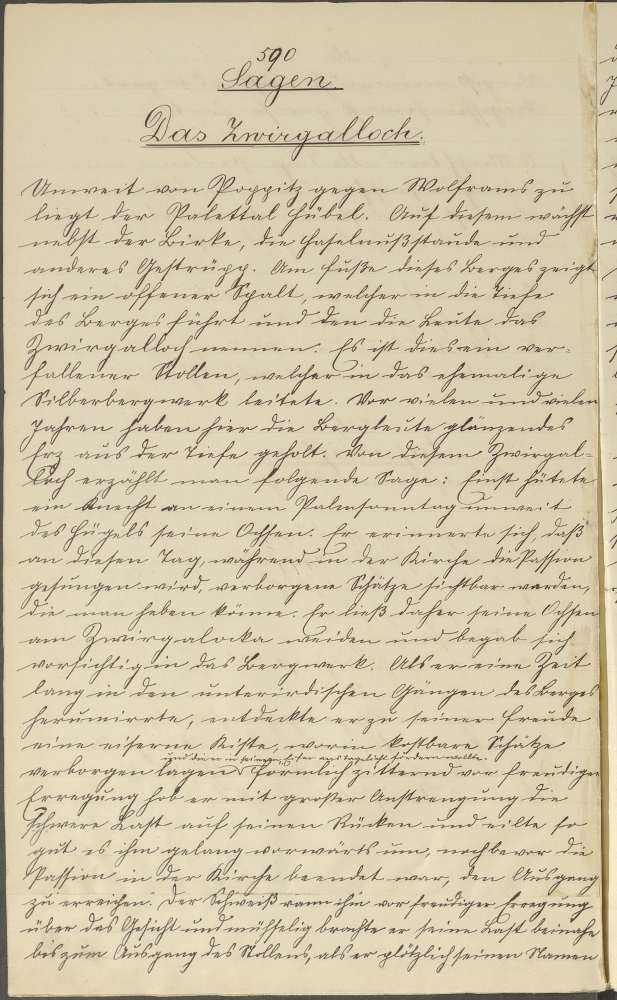 590
Sagen.
Das Zwirgalloch.
Unweit von Poppitz gegen Wolframs zu
liegt der Palettal Hübel. Auf diesem wächst
nebst der Birke, die Haselnußstaude und
anderes Gestrüpp. Am Fuße dieses Berges zeigt
sich ein offener Spalt, welcher in die Tiefe
des Berges führt und den die Leute das
Zwirgalloch nennen. Es ist dies ein ver-
fallener Stollen, welcher in das ehemalige
Silberbergwerk leitete. Vor vielen und vielen
Jahren haben hier die Bergleute glänzendes
Erz aus der Tiefe geholt. Von diesem Zwirgal-
loch erzählt man folgende Sage: Einst hütete
ein Knecht an einem Palmsonntag unweit
des Hügels seine Ochsen. Er erinnerte sich, daß
an diesen Tag, während in der Kirche die Passion
gesungen wird, verborgene Schätze sichtbar werden,
die man heben könne. Er ließ daher seine Ochsen
am Zwirgalocka weiden und begab sich
vorsichtig in das Bergwerk. Als er eine Zeit
lang in den unterirdischen Gängen des Berges
herumirrte, entdeckte er zu seiner Freude
eine eiserne Kiste, worin kostbare Schätze
und die er ans Tageslicht fördern wollte.
verborgen lagen förmlich zitternd vor freudiger
Erregung hob er mit großer Anstrengung die
schwere Last auf seinen Rücken und eilte so
gut es ihm gelang vorwärts um, noch bevor die
Passion in der Kirche beendet war, den Ausgang
zu erreichen. Der Schweiß rann ihm vor freudiger Erregung
über das Gesicht und mühselig brachte er seine Last beinahe
bis zum Ausgang des Stollens, als er plötzlich seinen Namen